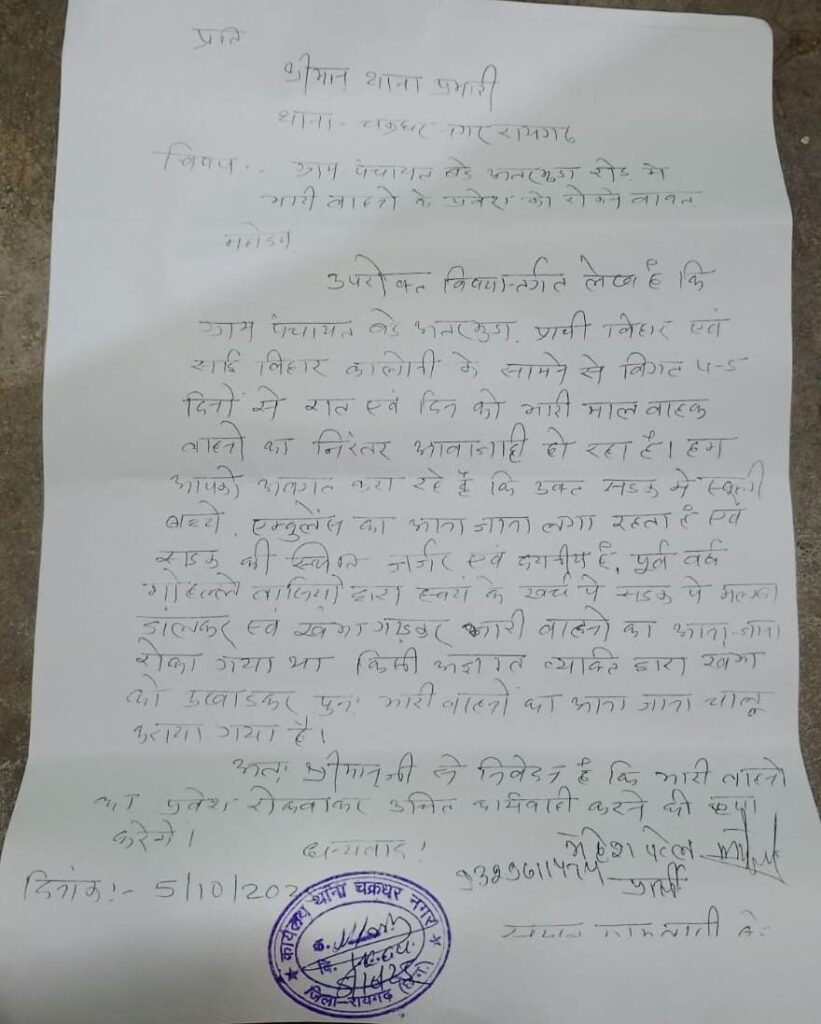 प्रति
श्रीमान् थाना प्रभारी
थाना - चक्रधर नगर रायगढ़
विषय :- ग्राम पंचायत बडे अतरमुडा रोड मे
भारी वाहनो के प्रवेश को रोकने बाबत
महोदय
उपरोक्त विषयान्तर्गत लेख है कि
ग्राम पंचायत बडे अतरमुडा, प्राची विहार एवं
साई विहार कालोनी के सामने से विगत 4-5
दिनों से रात एवं दिन को भारी माल वाहक
वाहनो का निरंतर आवाजाही हो रहा है। हम
आपको अवगत करा रहे है कि उक्त सडक मे स्कूली
बच्चे, एम्बुलेंस का आना जाना लगा रहता है एवं
सडक की स्थिति जर्जर एवं दयनीय है, पूर्व वर्ष
मोहल्ले वासियों द्वारा स्वयं के खर्च पे सडक पे मलबा
डालकर एवं खंभा गाड़कर भारी वाहनो का आना-जाना
रोका गया था किसी अज्ञात व्यक्ति द्वारा खंभा
को उखाडकर पुनः भारी वाहनो का आना जाना चालू
कराया गया है।
अतः श्रीमान् जी से निवेदन है कि भारी वाहनो
का प्रवेश रोकवाकर उचित कार्यवाही करने की कृपा
करेगे।
धन्यवाद!
महेश पटेल
प्रार्थी
दिनांक!- 5/10/202
समस्त ग्रामवासी
कार्यालय थाना चक्रधर नगर
क.
दि.
जिला-रायगढ़ (छ.ग.)